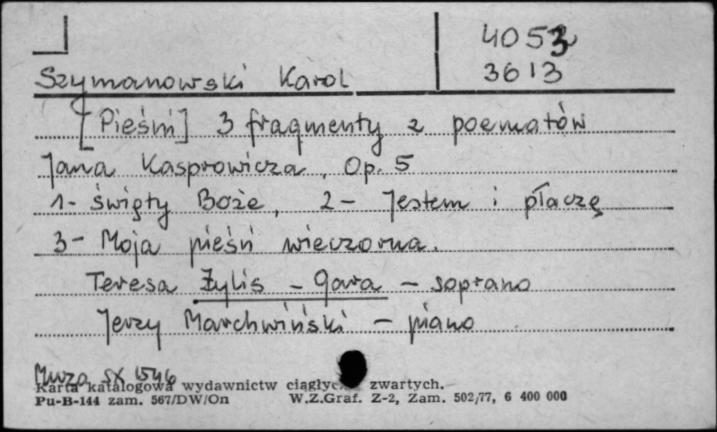 4053
Szymanowski Karol
3613
[Pieśni] 3 fragmenty z poematów
Jana Kasprowicza, Op. 5
1- święty Boże, 2- Jestem i płaczę
3- Moja pieśń wieczorna.
Teresa Żylis - Gara - soprano
Jerzy Marchwiński - piano
Muza SX 1546
Karta katalogowa wydawnictw ciągłyc zwartych.
Pu-B-144 zam. 567/DW/On W.Z.Graf. Z-2, Zam. 502/77, 6 400 000